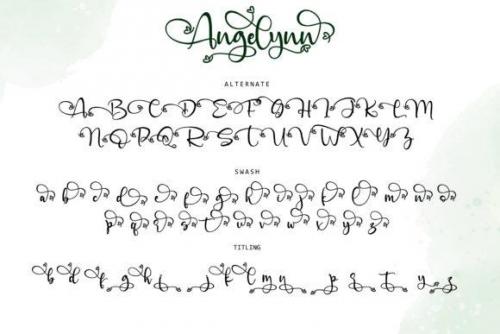 Angelynn
ALTERNATE
A B C D E F G H I J K L M
N O P Q R S T U V W X Y Z
SWASH
a b c d e f g h i j k l m n o
p q r s t u v w x y z
TITLING
b d f g h i j k l m n p s t y z